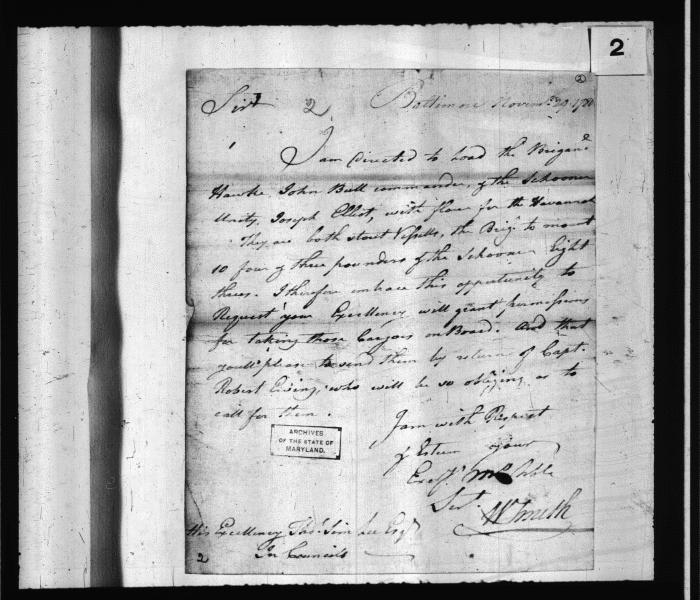 2
②
Sir 2 Baltimore Novem. 20 1780
I am Directed to Load the Brigane
Hawke, John Bull commander, & the Schooner
Unity, Joseph Elliot, with flour for the Havannah
They are both stout Vessells, the Brig to mount
10 four & three pounders & the Schooner Eight
threes. I therefore embrace this opportunity to
Request your Excellency will grant permissions
for taking those Cargoes on Board. And that
you'll please to send them by return of Capt.
Robert Ewing, who will be so obliging as to
call for them.
I am with Respect
& Esteem your
Excys. Mo. Hble
Sert.
Wm Smith
ARCHIVES
OF THE STATE OF
MARYLAND.
His Excellency Thos. Sim Lee Esqr
In Councill
2